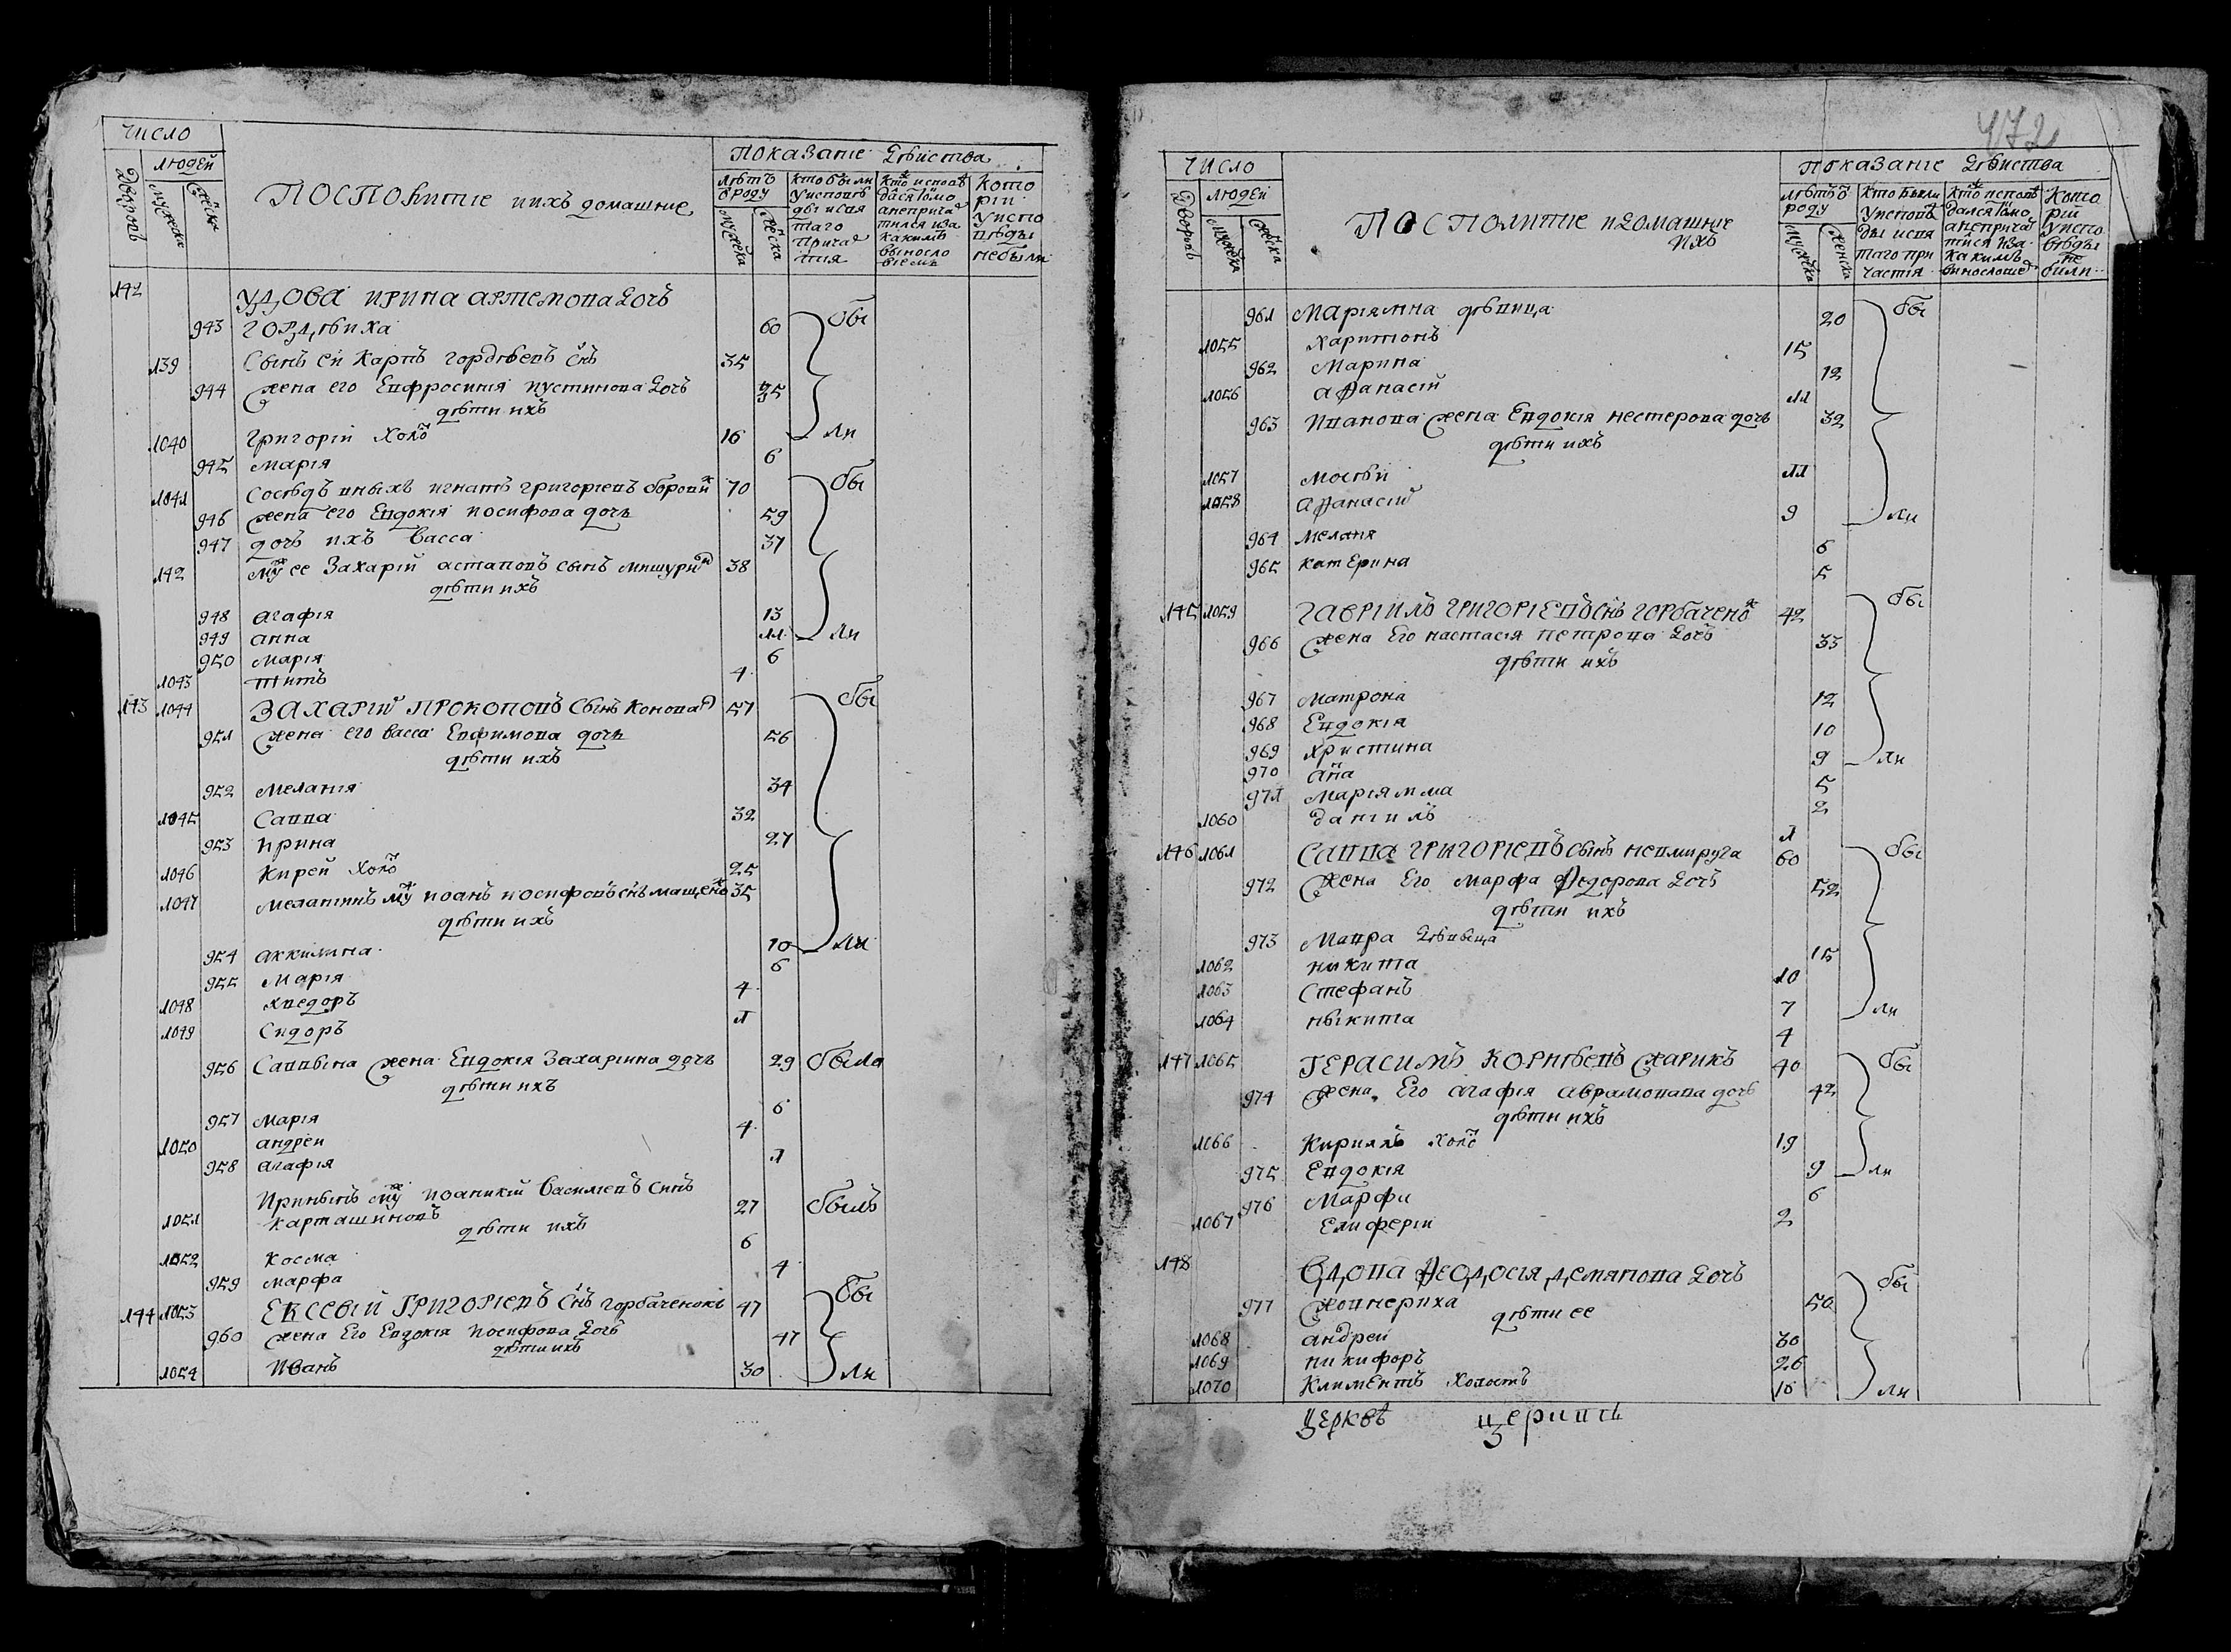 число
людей
Дворовъ
мужеска
женска
Посполитіе и ихъ домашние
Показаніе Дѣйства
Лѣтъ ѿ роду
мужеска
женска
Кто были у исповѣды и святаго Причастія
Кто исповѣдался токмо а не причастился и за какимъ винословіемъ
Которіи у исповѣды небыли
142 Удова Ирина Артемова дочъ
943 Гордѣиха 60 бы
139 Сынъ еи Карпъ Гордѣевъ снъ 35
944 Жена его Евфросинія Иустинова дочъ 35
дѣти ихъ
1040 Григорій холо 16 ли
945 Марія 6
1041 Сосѣдъ оныхъ Игнатъ Григоріевъ 70 бы
946 Жена его Евдокія Иосифова дочъ 59
947 дочъ ихъ Васса 37
142 Му ее Захарій Астаповъ сынъ Мишури 38
дѣти ихъ
948 Агафія 13
949 Анна 11 ли
950 Марія 6
1043 Титъ 4
143 1044 Захарій Прокоповъ Сынъ Конова 57 бы
951 Жена его Васса Евфимова дочъ 56
дѣти ихъ
952 Меланія 34
1045 Савва 32
953 Ирина 27
1046 Кирей холо 25
1047 Меланіинъ му Иоанъ Иосифовъ снъ Мащенко 35
дѣти ихъ
954 Аккилина 10 ли
955 Марія 6
1048 Хведоръ 4
1049 Сидоръ 1
956 Саввына Жена Евдокія Захаріина дочъ 29 была
дѣти ихъ
957 Марія 6
1050 Андреи 4
958 Агафія 1
Иринынъ му Иоаникій Василіевъ Синъ
1051 Карташиновъ 27 былъ
дѣти ихъ
1052 Косма 6
959 Марфа 4
144 1053 Евсевій Григоріевъ Снъ Горбаченокъ 47 бы
960 Жена Его Евдокія Иосифова дочъ 47
дѣти ихъ
1054 Иванъ 30 ли
472
число
людей
Дворовъ
мужеска
женска
Посполитіе и домашние ихъ
Показаніе Дѣйства
Лѣтъ ѿ роду
мужеска
женска
Кто были у исповѣды и святаго причастія
Кто исповѣдался токмо а не причастился и за какимъ
Которій у исповѣды не били
961 Маріямна дѣвица 20 бы
1055 Харитонъ 15
962 Марина 12
1056 Афанасій 11
963 Иванова Жена Евдокія Нестерова дочъ 32
дѣти ихъ
1057 Мосѣй 11
1058 Афанасій 9 ли
964 Меланя 6
965 Катерина 5
145 1059 Гавріилъ Григоріевъ Снъ Горбаченок 42 бы
966 Жена Его Настасія Петрова дочъ 33
дѣти ихъ
967 Матрона 12
968 Евдокія 10
969 Христина 9 ли
970 Ана 5
971 Маріямма 2
1060 Даніилъ 1
146 1061 Савва Григоріевъ Сынъ Невмируга 60 бы
972 Жена Его Марфа Федорова дочъ 52
дѣти ихъ
973 Мавра 15
1062 Никита 10
1063 Стефанъ 7 ли
1064 Ныкита 4
147 1065 Герасимъ Корнѣевъ Жарикъ 40 бы
974 Жена Его Агафія дочъ 42
дѣти ихъ
1066 Кирилъ холо 19
975 Евдокія 9 ли
976 Марфи 6
1067 Елиферіи 2
148 Вдова Феодосія Демянова дочъ бы
977 Жовнериха 50
дѣти ее
1068 Андреи 30
1069 Никифоръ 26
1070 Климентъ Холостъ 16 ли
церквѣ